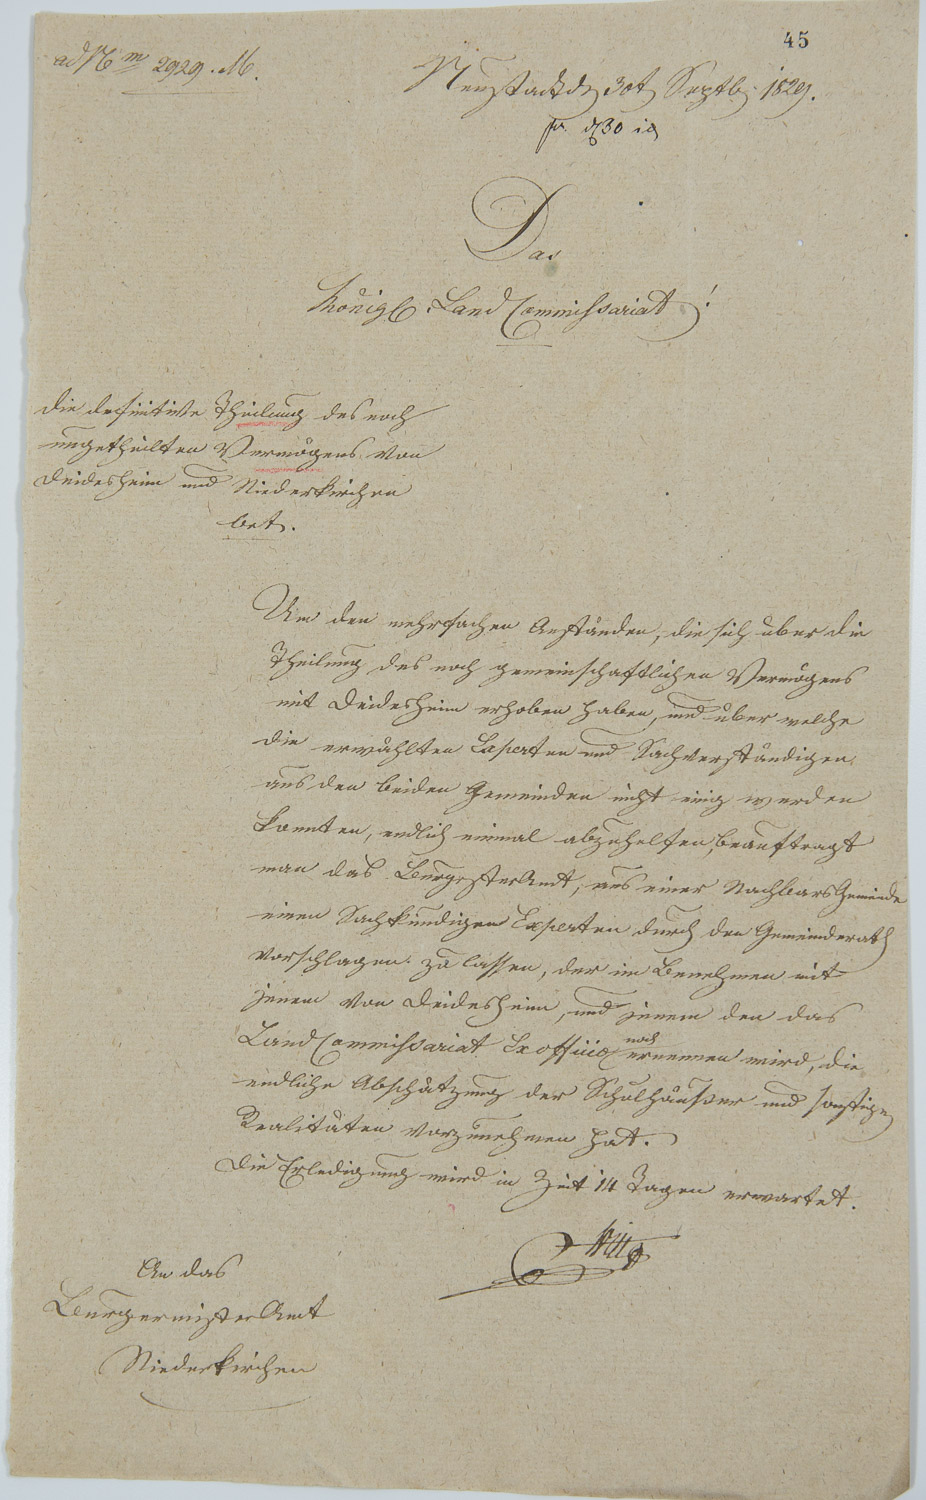 45
ad Nm 2929. M.
Neustadt den 30t Septbr 1829.
pr. d 30
Das
Königl. Land Commissariat!
die definitive Theilung des noch
ungetheilten Vermögens von
Deidesheim und Niederkirchen
bet.
Um den mehrfachen Anständen, die sich über die
Theilung des noch gemeinschaftlichen Vermögens
mit Deidesheim erhoben haben, und über welche
die erwählten Experten und Sachverständigen
aus den beiden Gemeinden nicht einig werden
konnten, endlich einmal abzuhelfen, beauftragt
man das BurgesterAmt, aus einer NachbarsGemeinde
einen Sachkundigen Experten durch den Gemeinderath
vorschlagen zu lassen, der im Benehmen mit
jenem von Deidesheim, und jenem den das
LandCommissariat Ex officio noch ernennen wird, die
endliche Abschätzung der Schulhäußer und sonstigen
Realitäten vorzunehmen hat.
Die Erledigung wird in Zeit 14 Tagen erwartet.
An das
BurgermeisterAmt
Niederkirchen